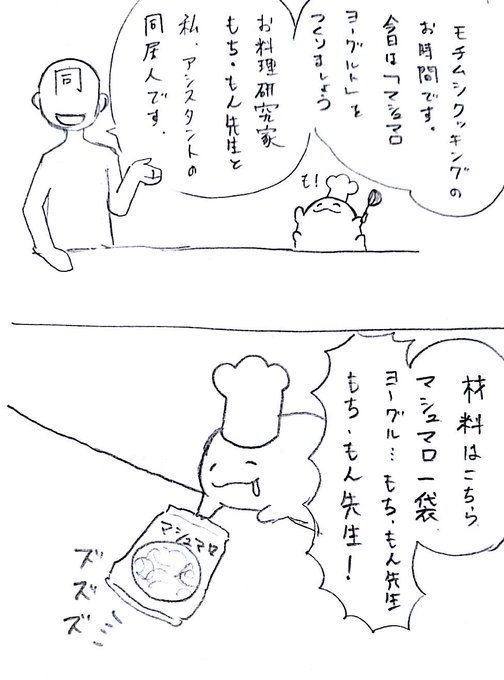 モチムシクッキングの
お時間です。
今日は「マシュマロ
ヨーグルト」を
つくりましょう
お料理研究家
もち・もん先生と
私、アシスタントの
同居人です。
同
も!
材料はこちら
マシュマロ一袋
ヨーグル…もち・もん先生
もち・もん先生!
マシュマロ
ズ
ズ
ズ